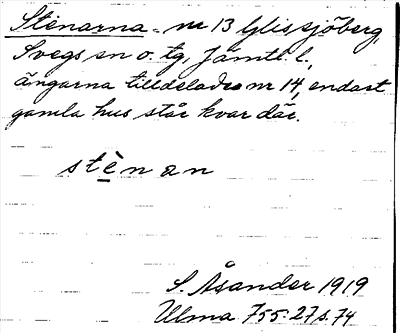 Stenarna - nr 13 Glissjöberg,
Svegs sn o. tg, Jämtl. l.,
ängarna tilldelades nr 14, endast
gamla hus står kvar där.
stèn an
S. Åsander 1919
Ulma 755:27 s. 74